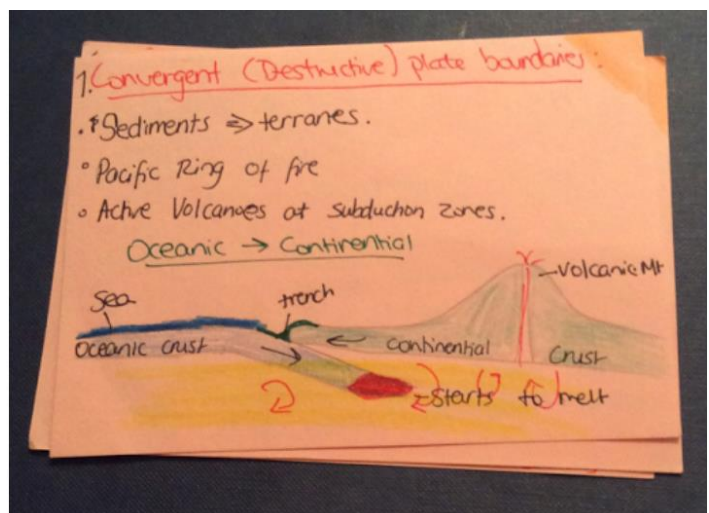 1. Convergent (Destructive) plate boundaries:
• Sediments ⇒ terranes.
• Pacific Ring of fire
• Active Volcanoes at subduction zones.
Oceanic → Continential
Volcanic Mt
Sea
trench
Oceanic crust
Continential
Crust
Starts to melt